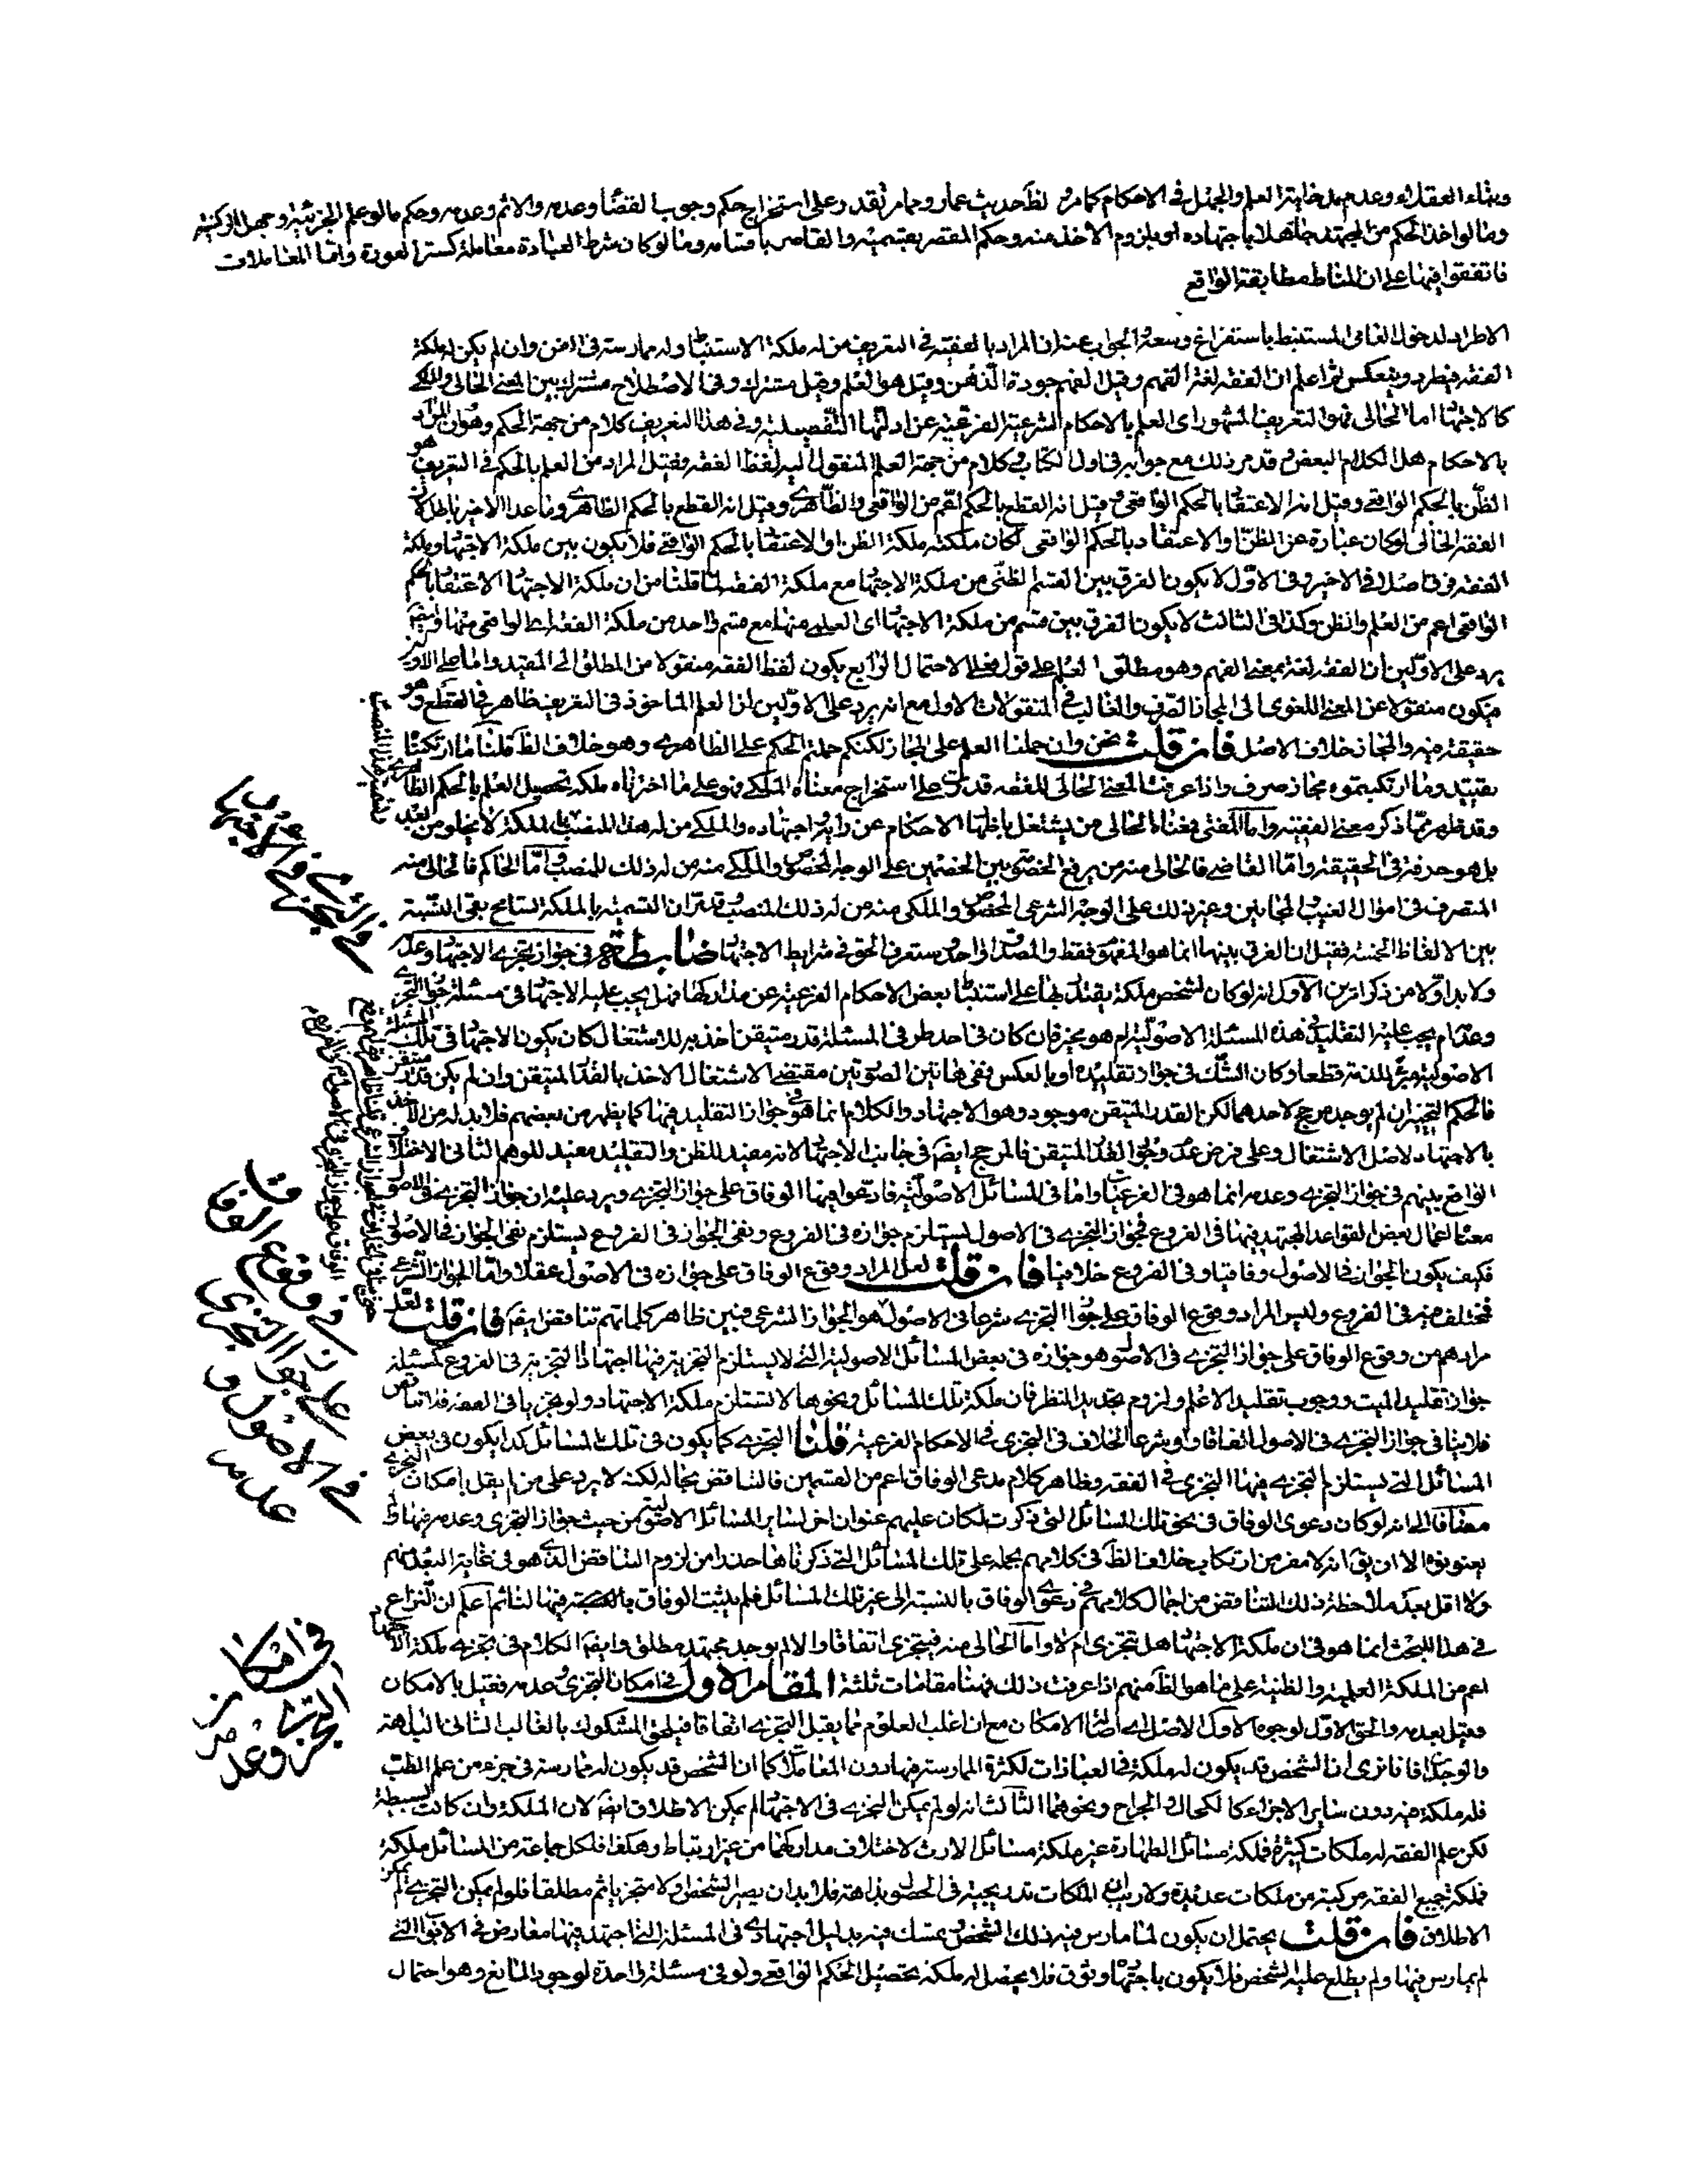 وبناء العقلاء وعدم مدخلية العلم والجهل في الاحكام كما مر لظ حديث عمار ومما مر تقدر على استخراج حكم وجوب القضا وعدمه والاثم وعدمه وحكم ما لو علم الجزئية وجهل الركنية
وما لو اخذ الحكم من المجتهد جاهلا باجتهاده او بلزوم الاخذ منه وحكم المقصر بقسميه والقاصر باقسامه وما لو كان شرط العبادة معاملة كستر العورة واما المعاملات
فاتفقوا فيها على ان المناط مطابقة الواقع
الاطراد لدخول العامى المستنبط باستفراغ وسعه الجواب عنه ان المراد بالفقيه في التعريف من له ملكة الاستنباط وله ممارسة في الفن وان لم يكن له ملكة
الفقه فيطرد وينعكس ثم اعلم ان الفقه لغة الفهم وقيل الفهم جودة الذهن وقيل هو العلم وقيل مشترك وفى الاصطلاح مشترك بين المعنى الحالى والملكى
كالاجتهاد اما الحالى فهو التعريف المشهور اى العلم بالاحكام الشرعية الفرعية عن ادلتها التفصيلية وفي هذا التعريف كلام من جهة الحكم وهو ان المراد
بالاحكام هل الكل او البعض وقد مر ذلك مع جوابه في اول الكتاب وكلام من جهة العلم المنقول اليه لفظ الفقه فقيل المراد من العلم بالحكم في التعريف هو
الظن بالحكم الواقعي وقيل انه الاعتقاد بالحكم الواقعى وقيل انه القطع بالحكم الاعم من الواقعى والظاهرى وقيل انه القطع بالحكم الظاهرى وما عدا الاخير باطل لان
الفقه الحالى لو كان عبارة عن الظن او الاعتقاد بالحكم الواقعى لكان ملكته ملكة الظن او الاعتقاد بالحكم الواقعي فلا يكون بين ملكة الاجتهاد وملكة
الفقه فرق اصلا في الاخير وفى الاول لا يكون الفرق بين القسم الظنى من ملكة الاجتهاد مع ملكة الفقه لما قلنا من ان ملكة الاجتهاد الاعتقاد بالحكم
الواقعى اعم من العلم والظن وكذا في الثالث لا يكون الفرق بين قسم من ملكة الاجتهاد اى العلمي منها مع قسم واحد من ملكة الفقه اى الواقعى منها
يرد على الاولين ان الفقه لغة بمعنى الفهم وهو مطلق العلم على قول فعلى الاحتمال الرابع يكون لفظ الفقه منقولا من المطلق الى المقيد واما على
فيكون منقولا عن المعنى اللغوى الى المجاز الصرف والغالب في المنقولات الاول مع انه يرد على الاولين ان العلم الماخوذ في التعريف ظاهر في القطع وهو
حقيقة فيه والمجاز خلاف الاصل فان قلت نحن وان حملنا العلم على المجاز لكنكم حملتم الحكم على الظاهرى وهو خلاف الظ قلنا ما ارتكبنا
تقييد وما ارتكبتموه مجاز صرف واذا عرفت المعنى الحالى للفقه قدرت على استخراج معناه الملكي فهو على ما اخترناه ملكة تحصيل العلم بالحكم الظاهرى
وقد ظهر مما ذكر معنى الفقيه واما المفتى فمعناه الحالى من يشتغل باظهار الاحكام عن راى واجتهاده والملكي من له هذا المنصب بالملكة لا يخلو من البعد
بل هو حرفة في الحقيقة واما القاضي فالحالى منه من يرفع الخصومة بين الخصمين على الوجه المخصوص والملكي منه من له ذلك المنصب واما الحاكم فالحالى منه
المتصرف في اموال الغيب والمجانين وغير ذلك على الوجه الشرعى المخصوص والملكى منه من له ذلك المنصب قد مر ان التسمية بالملكة تسامح بقى النسبة
بين الالفاظ الخمسة فقيل ان الفرق بينها انما هو المفهوم فقط والمصداق واحد وستعرف الحق في شرايط الاجتهاد ضابطة في جواز تجزى الاجتهاد وعدمه
ولا بد اولا من ذكر امرين الاول انه لو كان لشخص ملكة يقتدر بها على استنباط بعض الاحكام الفرعية عن مداركها فهل يجب عليه الاجتهاد في مسئلة جواز التجزى
وعدمه ام يجب عليه التقليد في هذه المسئلة الاصولية ام هو مخير فان كان في احد طرفى المسئلة قدر متيقن اخذ به للاشتغال كان يكون الاجتهاد في تلك المسئلة
الاصولية مبرئ للذمة قطعا وكان الشك في جواز تقليده او بالعكس ففي هاتين الصورتين مقتضى الاشتغال الاخذ بالقدر المتيقن وان لم يكن قدر متيقن
فالحكم التخيير ان لم يوجد مرجح لاحدهما لكن القدر المتيقن موجود وهو الاجتهاد والكلام انما هو في جواز التقليد فيها كما يظهر من بعضهم فلا بد له من الاخذ
بالاجتهاد لاصل الاشتغال وعلى فرض عدم وجود القدر المتيقن فالمرجح ايضا في جانب الاجتهاد لانه مفيد للظن والتقليد مفيد للوهم الثانى الاختلاف
الواقع بينهم في جواز التجزى وعدمه انما هو في الفرعيات واما في المسائل الاصولية فادعوا فيها الوفاق على جواز التجزى ويرد عليه ان جواز التجزى في الاصول
معناه اعمال بعض القواعد المجتهد فيها في الفروع فجواز التجزى في الاصول يستلزم جوازه في الفروع ونفى الجواز في الفروع يستلزم نفى الجواز في الاصول
فكيف يكون الجواز في الاصول وفاقيا وفى الفروع خلافيا فان قلت لعل المراد وقوع الوفاق على جوازه في الاصول عقلا واما الجواز الشرعى
فمختلف فيه في الفروع وليس المراد وقوع الوفاق على جواز التجزى شرعا في الاصول هو الجواز الشرعى فبين ظاهر كلماتهم تناقض ايضا فان قلت لعل
مرادهم من وقوع الوفاق على جواز التجزى في الاصول هو جوازه في بعض المسائل الاصولية التى لا يستلزم التجزية فيها اجتهادا التجزية في الفروع كمسئلة
جواز تقليد الميت ووجوب تقليد الاعلم ولزوم تجديد النظر فان ملكة تلك المسائل ونحوها لا تستلزم ملكة الاجتهاد ولو تجزيا في الفقه فلا تناقض
فلا ينافى جواز التجزى في الاصول اتفاقا ولو شرعا الخلاف في التجزى في الاحكام الفرعية قلنا التجزى كما يكون في تلك المسائل كذا يكون في بعض
المسائل التى يستلزم التجزى فيها التجزى في الفقه وظاهر كلام مدعى الوفاق اعم من القسمين فالتناقض بحاله لكنه لا يرد على من لم يقل بامكان التجزى
مضافا الى انه لو كان دعوى الوفاق في نحو تلك المسائل التى ذكرت لكان عليهم عنوان اخر لساير المسائل الاصولية من حيث جواز التجزى وعدمه فيها ولم
يعنونوه الا ان يق انه لا مفر من ارتكاب خلاف الظ في كلامهم بحمله على تلك المسائل التى ذكرناها حذرا من لزوم التناقض الذى هو في غاية البعد منهم
ولا اقل بعد ملاحظة ذلك التناقض من اجمال كلامهم في دعوى الوفاق بالنسبة الى غير تلك المسائل فلم يثبت الوفاق بالنسبة فيها لنا ثم اعلم ان النزاع
في هذا المبحث انما هو في ان ملكة الاجتهاد هل تتجزى ام لا واما الحالى منه فيتجزى اتفاقا والا لم يوجد مجتهد مطلق وايضا الكلام في تجزى ملكة الاجتهاد
اعم من الملكة العلمية والظنية على ما هو الظ منهم اذا عرفت ذلك فهنا مقامات ثلثة المقام الاول في امكان التجزى وعدمه فقيل بالامكان
وقيل بعدمه والحق الاول لوجوه الاول الاصل اى اصالة الامكان مع ان اغلب العلوم مما يقبل التجزى اتفاقا فيلحق المشكوك بالغالب الثانى البداهة
والوجدان فانا نرى ان الشخص قد يكون له ملكة في العبادات لكثرة الممارسة فيها دون المعاملات كما ان الشخص قد يكون له ممارسة في جزء من علم الطب
فله ملكة فيه دون ساير الاجزاء كالكحال والجراح ونحوهما الثالث انه لو لم يمكن التجزى في الاجتهاد لم يمكن الاطلاق ايضا لان الملكة وان كانت بسيطة
لكن علم الفقه له ملكات كثيرة فملكة مسائل الطهارة غير ملكة مسائل الارث لاختلاف مداركهما من غير ارتباط وهكذا فلكل جماعة من المسائل ملكة
فملكة جميع الفقه مركبة من ملكات عديدة ولا ريب ان الملكات تدريجية في الحصول بداهة فلا بد ان يصير الشخص اولا متجزيا ثم مطلقا فلو لم يمكن التجزى لم يمكن
الاطلاق فان قلت يحتمل ان يكون لما مارس فيه ذلك الشخص وتمسك فيه بدليل اجتهادى في المسئلة التى اجتهد فيها معارض في الابواب التى
لم يمارس فيها ولم يطلع عليه الشخص فلا يكون باجتهاده وثوق فلا يحصل له ملكة تحصيل الحكم الواقعي ولو في مسئلة واحدة لوجود المانع وهو احتمال
في وقوع الوفاق
على جواز التجزى
في الاصول و
عدمه
في امكان
التجزى
وعدمه